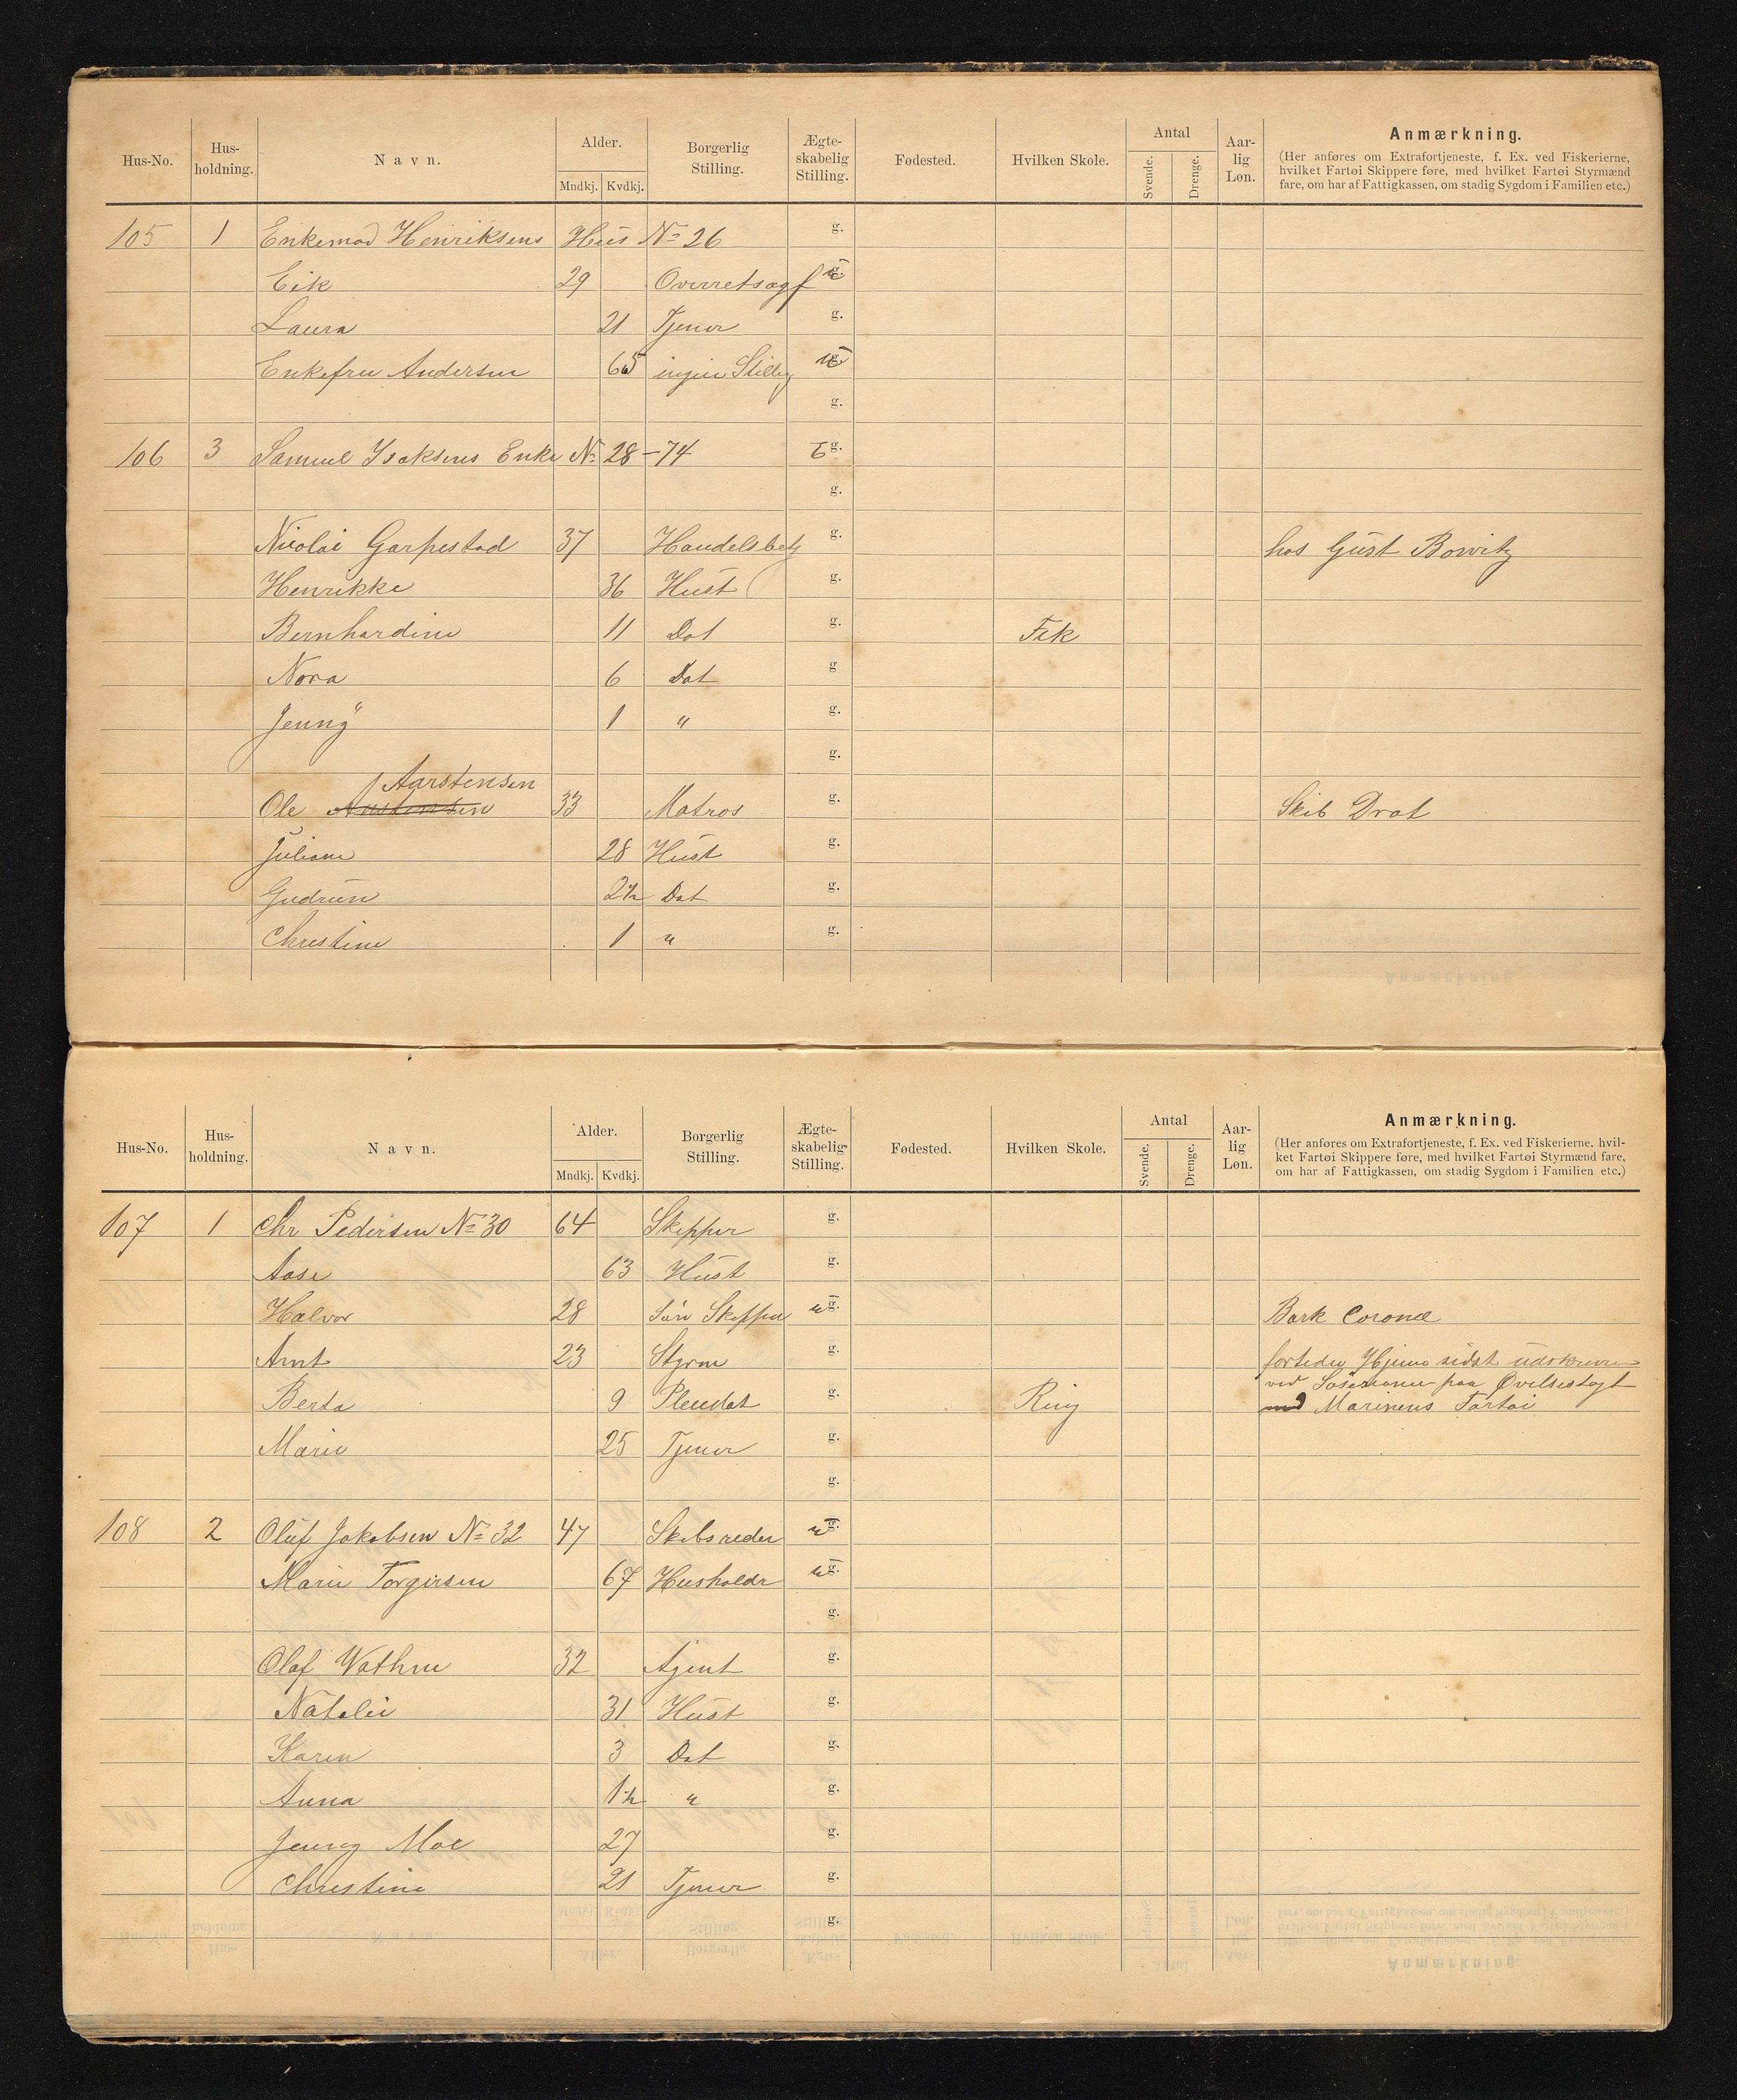 Hus-No. Hus-holdning. Navn. Alder. Mndkj. Kvdkj. Borgerlig Stilling. Ægte-skabelig Stilling. Fødested. Hvilken Skole. Antal Svende. Drenge. Aar-lig Løn. Anmærkning.
(Her anføres om Extrafortjeneste, f. Ex. ved Fiskerierne,
hvilket Fartøi Skippere føre, med hvilket Fartøi Styrmænd
fare, om har af Fattigkassen, om stadig Sygdom i Familien etc.)
105 1 Enkemad Henriksens Hus No 26 g.
Eik 29 Overretsagf u g.
Laura 21 Tjener g.
Enkefru Andersen 65 ingen Stillg g.
g.
106 3 Samuel Isaksens Enke No 28 - 74 E g.
g.
Nicolai Garpestad 37 Handelsbetj g. hos Gust Bowitz
Henrikke 36 Hust g.
Bernhardine 11 Dat g. Fik
Nora 6 Dat g
Jenny 1 " g.
g.
Aarstensen
Ole Austensen 33 Matros g. Skib Drot
Juliane 28 Hust g.
Gudrun 2½ Dat g.
Christine 1 " g.
Hus-No. Hus-holdning. Navn. Alder. Mndkj. Kvdkj. Borgerlig Stilling. Ægte-skabelig Stilling. Fødested. Hvilken Skole. Antal Svende. Drenge. Aar-lig Løn. Anmærkning.
(Her anføres om Extrafortjeneste, f. Ex. ved Fiskerierne, hvil-
ket Fartøi Skippere føre, med hvilket Fartøi Styrmænd fare,
om har af Fattigkassen, om stadig Sygdom i Familien etc.)
107 1 Chr Pedersen No 30 64 Skipper g.
Aase 63 Hust g.
Halvor 28 Søn Skipper u g. Bark Coronel
Arnt 23 Styrm g. fortiden Hjeme sidst udskreven
ved paa Øvelsestogt
Berta 9 Pleiedat g. Ring med Marinens Fartøi
Marie 25 Tjener g.
g.
108 2 Oluf Jakobsen No 32 47 Skibsreder u g.
Marie Torgersen 67 Husholdr u g.
g.
Olaf Wathne 32 Agent g.
Natalie 31 Hust g.
Karen 3 Dat g.
Anna 1½ " g.
Jenny Moe 27 g.
Christine 21 Tjener g.
g.